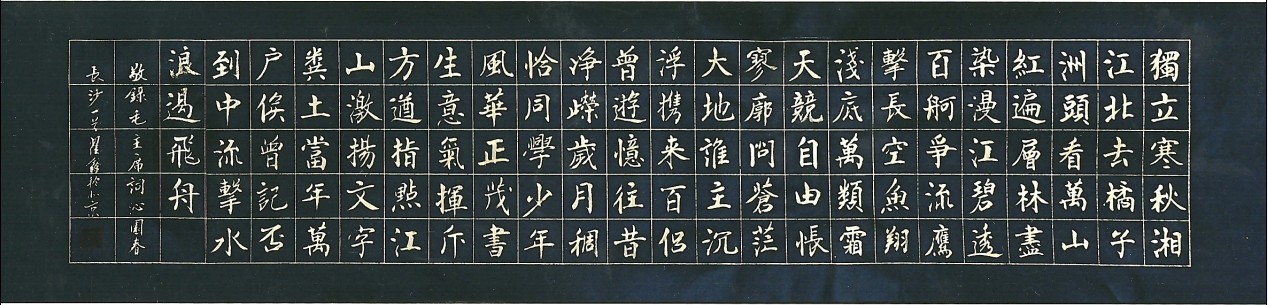 獨立寒秋湘
江北去橘子
洲頭看萬山
紅遍層林盡
染漫江碧透
百舸爭流鷹
擊長空魚翔
淺底萬類霜
天競自由悵
寥廓問蒼茫
大地誰主沉
浮携来百侶
曾遊憶往昔
崢嶸歲月稠
恰同學少年
風華正茂書
生意氣揮斥
方遒指點江
山激揚文字
糞土當年萬
户侯曾記否
到中流擊水
浪遏飛舟
敬錄毛主席詞沁園春
長沙一首於北京